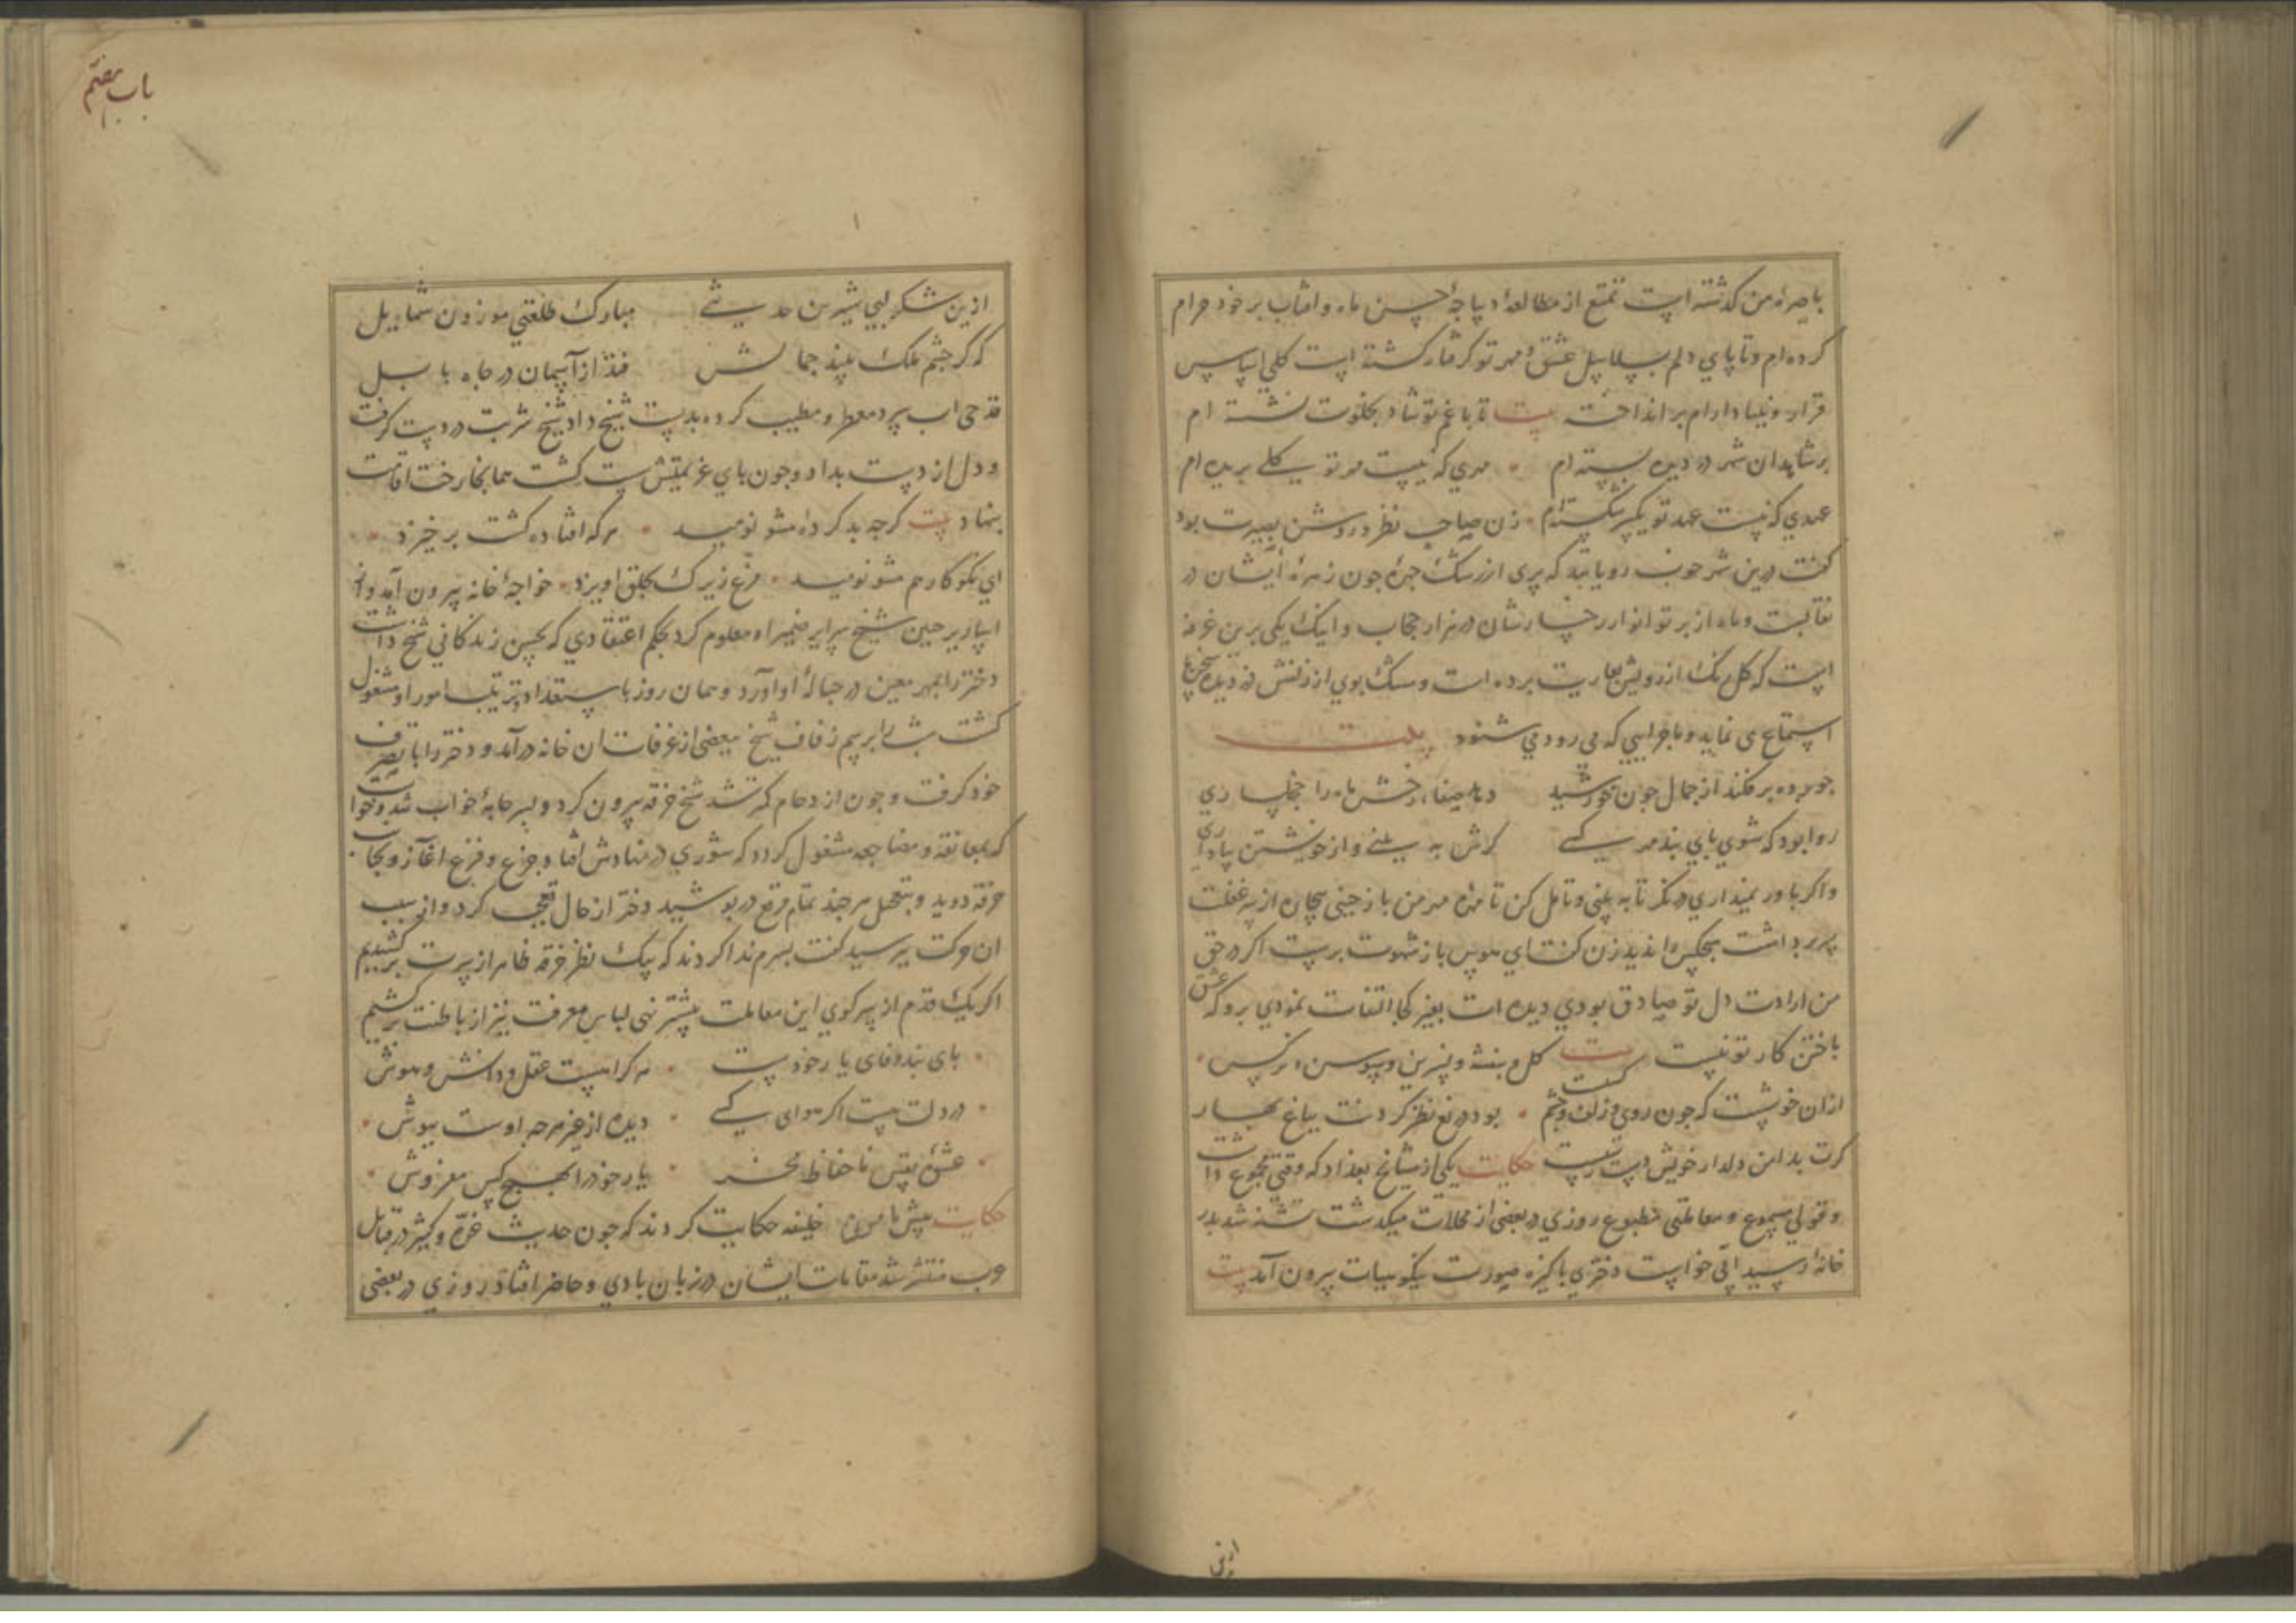 باصره من کذشته است تمتع از مطالعه دیباجهٔ حسن ماه و افتاب بر خود حرام
کرده ام و تا پای دلم بسلاسل عشق و مهر تو کرفتار کشته است کلی اساس
قرار و بنیاد ارام بر انداخته بیت تا با غم تو شاد بخلوت نشسته ام
بر شاهدان شهر در دیده بسته ام مهری که نیست مهر تو بکلی بریده ام
عهدی که نیست عهد تو یکسر شکسته ام زن صاحب نظر و روشن بصیرت بود
کفت درین شهر خوب رویانند که پری از رشک چهرهٔ چون زهرهٔ ایشان در
نقابست و ماه از پرتو انوار رخسارشان در هزار حجاب و اینک یکی برین غرفه
است که کل رنک از رویش بعاریت برده است و مشک بوی از زلفش دزدیده
استماع می نماید و ماجرایی که می رود می شنود بیت
چو پرده بر فکند از جمال چون خورشید دهد صفاء رخش ماه را خجلساری
روا بود که شوی پای بند مهر کسی کرش به بینی و از خویشتن بیاد آری
و اکر باور نمیداری در نکر تا به بینی و تامل کن تا مهره مهر من باز چینی بیچاره از سر غفلت
سر برداشت هیچکس را ندید زن کفت ای هوس باز شهوت پرست اکر در حق
من ارادت دل تو صادق بودی دیده ات بغیر کجا التفات نمودی برو که عشق
باختن کار تو نیست بیت کل و بنفشه و نسرین و سوسن و نرکس
ازان خوشست که چون روی و زلف و چشم کسیست بود دریغ نظر کردنت بباغ بهار
کرت بدامن دلدار خویش دست رسیست حکایت یکی از مشایخ بغداد که وقتی مجموع داشت
و قولی مسموع و معاملتی مطبوع روزی در بعضی از محلات میکذشت تشنه شد بدر
خانهٔ رسید آبی خواست دختری پاکیزه صورت نیکو هیات بیرون آمد بیت
ازین
باب هفتم
ازین شکر لبی شیرین حدیثی مبارک طلعتی موزون شمایل
که کر چشم ملک بیند جمالش فتد از آسمان در چاه بابل
قدحی اب سرد معطر و مطیب کرده بدست شیخ داد شیخ شربت در دست کرفت
و دل از دست بداد و چون پای عزیمتش سست کشت همانجا رخت اقامت
بنهاد بیت کر چه بد کرده مشو نومید هر که افتاده کشت برخیزد
ای نکو کار هم مشو نومید مرغ زیرک بحلق اویزد خواجهٔ خانه بیرون آمد و از
اساریر جبین شیخ سرایر ضمیر او معلوم کرد بحکم اعتقادی که بحسن زندکانی شیخ داشت
دختر را بمهر معین در حبالهٔ او اورد و همان روز باستعداد و ترتیب امور او مشغول
کشت شب را برسم زفاف شیخ ببعضی از غرفات ان خانه درآمد و دختر را با تصرف
خود کرفت و چون ازدحام کمتر شد شیخ خرقه بیرون کرد و بسر جامهٔ خواب شد و خواست
که بمعانقه و مضاجعه مشغول کردد که شوری در نهادش افتاد و جزع و فزع اغاز و بجانب
خرقه دوید و بتعجیل هر چند تمام مرقع در پوشید دختر از حال تعجب کرد و از سبب
ان حرکت پرسید کفت بسرم ندا کردند که بیک نظر خرقه ظاهر از سرت برکشیدیم
اکر یک قدم از سر کوی این معاملت پیشتر نهی لباس معرفت نیز از باطنت برکشیم
پای بند وفای یار خودست هر کرا هست عقل و دانش و هوش
در دلت هست اکر هوای کسی دیده از غیر هر چه اوست بپوش
عشق بیش ناحفاظ مخر یار خود را بهیچ کس مفروش
حکایت پیش مامون خلیفه حکایت کردند که چون حدیث عزه و کثیر در قبایل
عرب منتشر شد مقامات ایشان در زبان بادی و حاضر افتاد روزی در بعضی